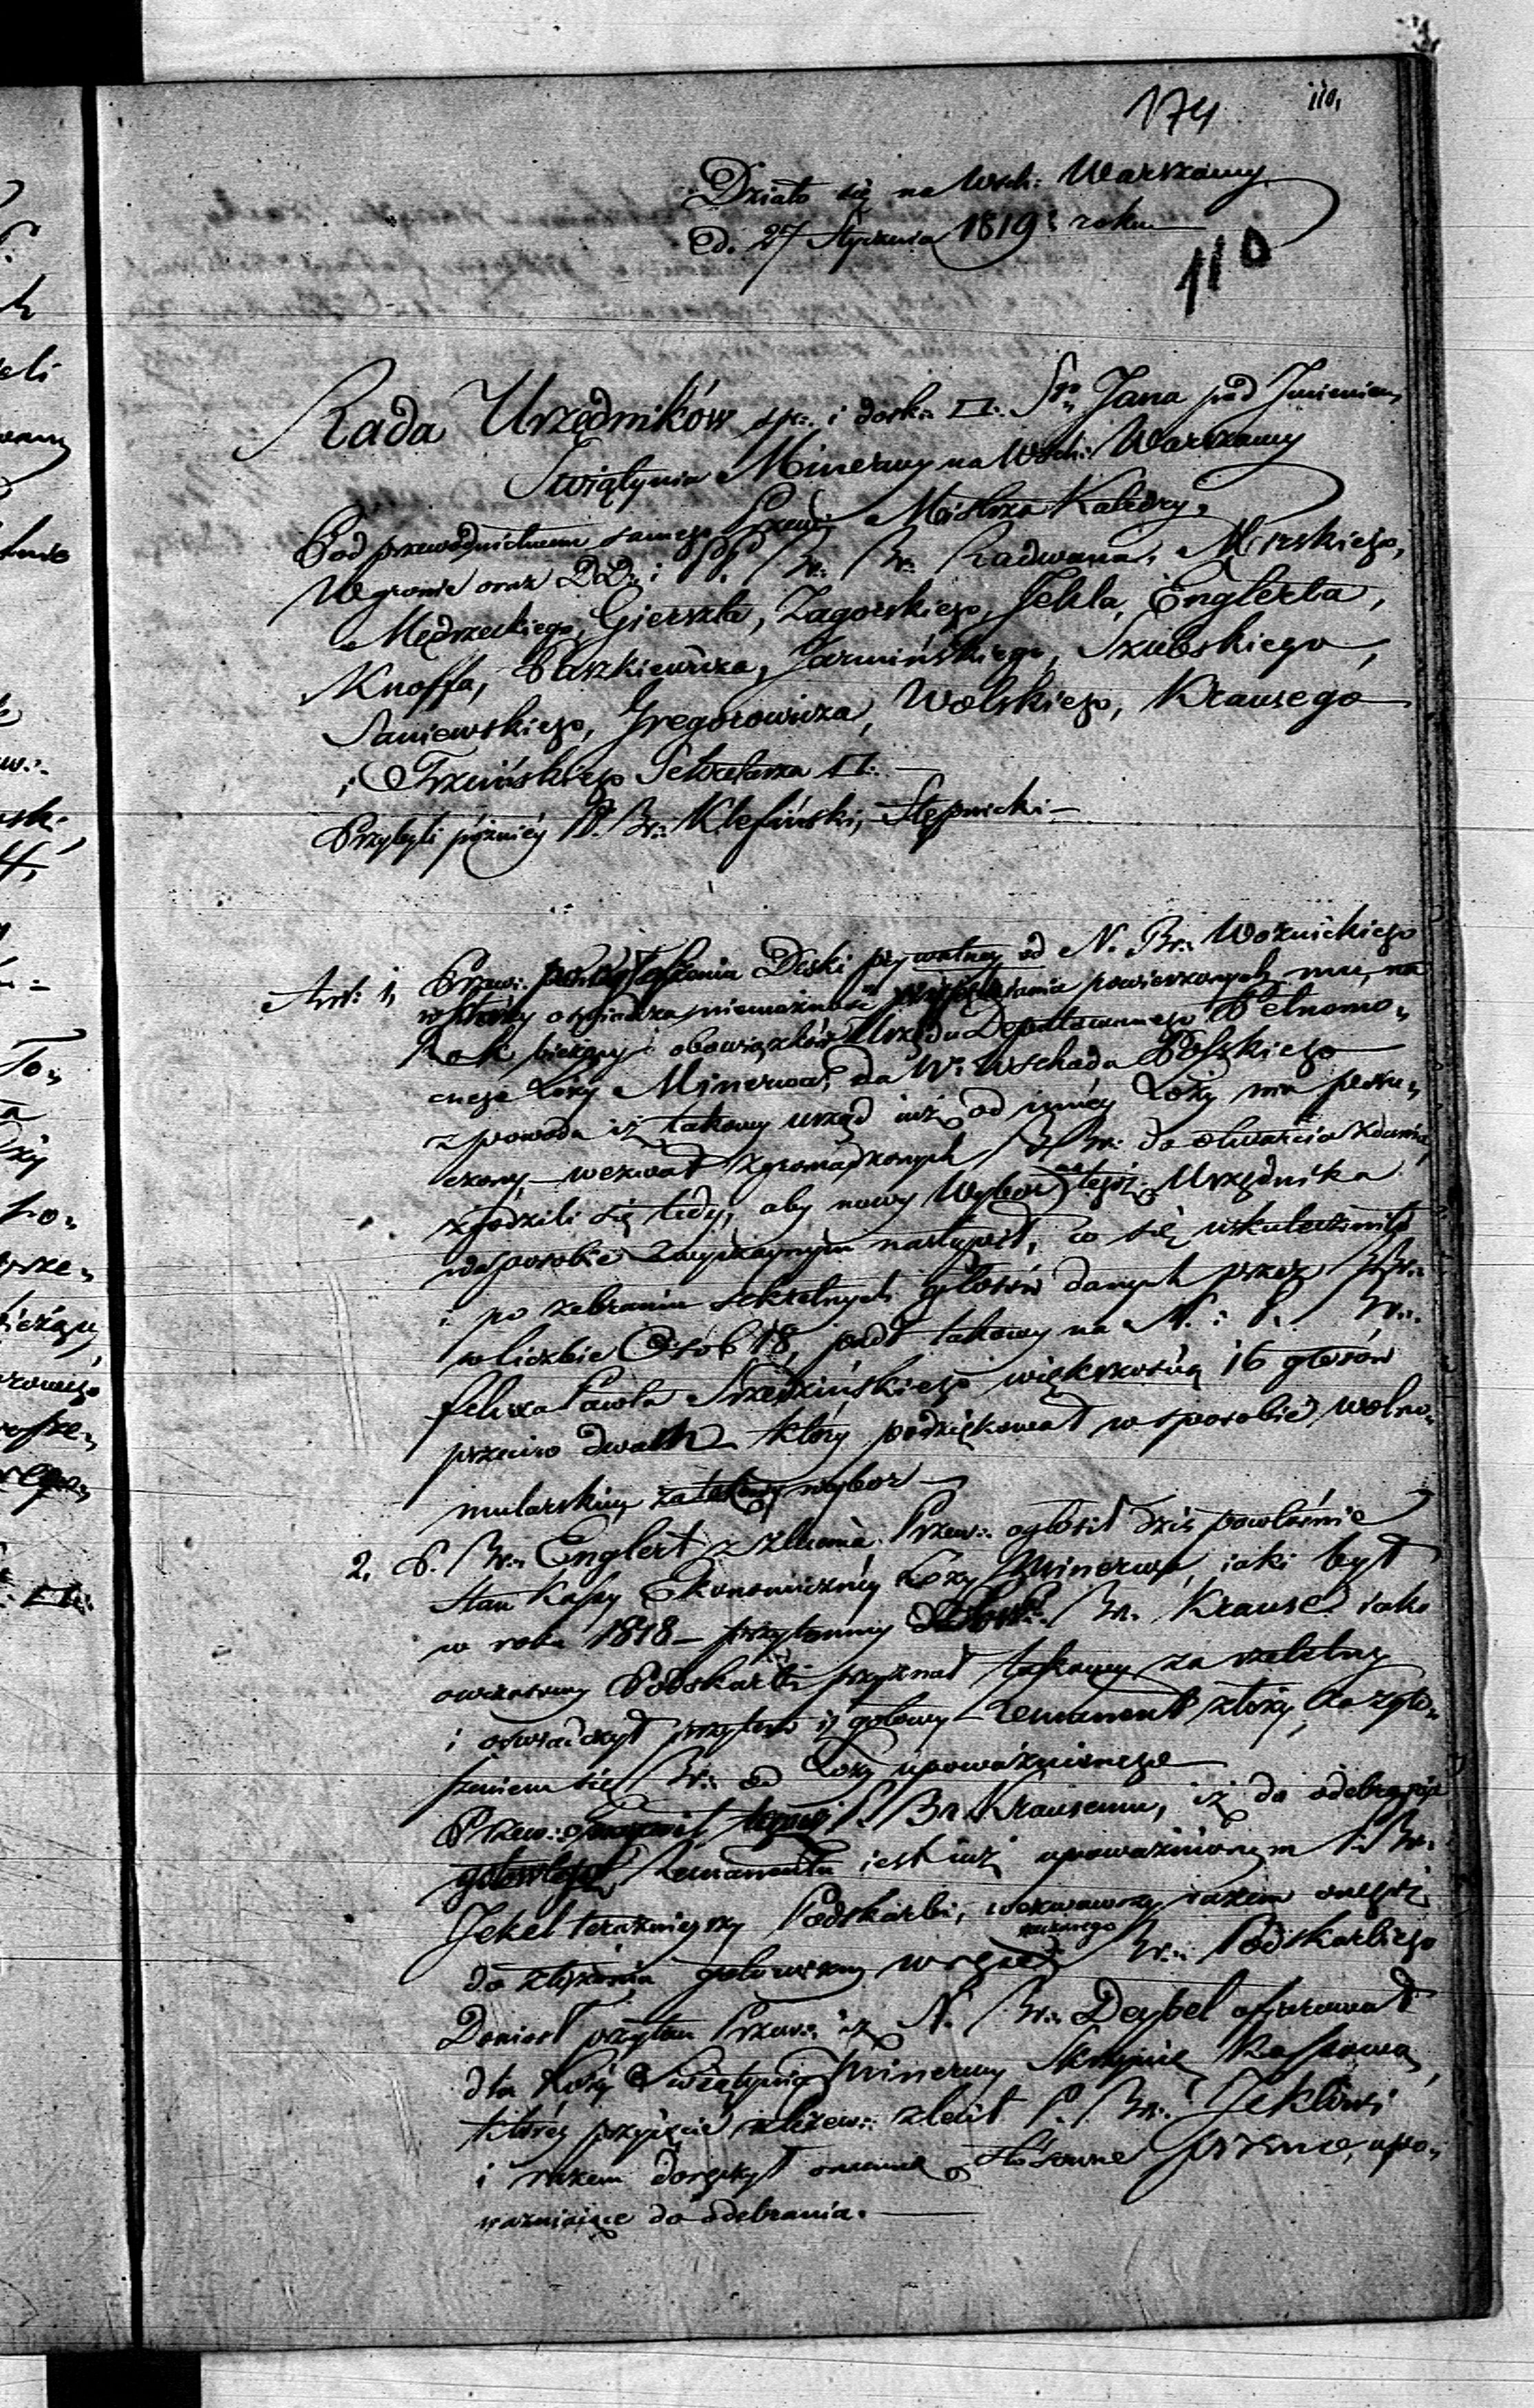 174 110,
Działo się na Wsch: Warszawy
d. 27 Stycznia 1819 roku
110
Rada Urzędników sp: i dosk: □: Sgo Jana pod Imieniem
Świątynia Minerwy na Wsch: Warszawy
Pod przewodnictwem samego Przew: Mistrza Katedry,
W gronie oraz DD: i PP. Br: Br: Radwana, Mirskiego,
Mędrzeckiego, Gierszta, Zagorskiego, Jekla, Englerta,
Knoffa, Paszkiewicza, Jarmińskiego, Szubskiego,
Saniewskiego, Gregorowicza, Wolskiego, Krausego
i Trzcińskiego Sekretarza □:
Przybyli później P. Br: Klefiński, Stępnicki —
Art: 1, Przew: Deski prywatney od N. Br: Woznickiego
w którey oświadcza niemożność powierzonych mu, na
Rok bieżący obowiązków Urzędu Deputowanego Pełnomo„
cnego Loży Minerwa, na W: Wschodu Polskiego
z powodu iż takowy urząd iuż od innéy Loży ma poru„
czony — wezwał zgromadzonych Br: do otwarcia zdania,
zgodzili się tedy, aby nowy Wybor tegoż Urzędnika
w sposobie zwyczaynym nastąpił, co się uskuteczniło
i po zebraniu sekretnych głosów danych przez Br:
w liczbie Osób 18, padł takowy na N. : P. Br:
Felixa Pawła Trzcińskiego większością 16 głosów
przeciw dwóch który podziękował w sposobie wolno„
mularskim za takowy wybor —
2, P. Br: Englert z zlecenia Przew: ogłosił dziś powtórnie
Stan Kassy Ekonomicznéy Loży Minerwa, iaki był
w roku 1818 — przytomny Br: Krause iako
owczasowy Podskarbi przyznał takowy za rzetelny
i oświadczył przytem iż gotowy remanent złoży, za zgło„
szeniem się Br: od Loży upoważnionego
Przew: P. Br: Krausemu, iż do odebrania
gotowego Remanentu iest iuż upoważnionym P: Br:
Jekel teraźnieyszy Podskarbi, wezwawszy razem onegoż
do złożenia gotowizny w ręce rzeczonego Br: Podskarbiego
Doniosł przytem Przew: iż N. Br: Deybel ofiarował
dla Loży Świątynia Minerwy Skrzynię Kassową,
któréy przyięcie Przew: zlecił P. Br: Jeklowi
i razem doręczył onemuż stosowne pismo, upo„
ważniaiące do odebrania. —